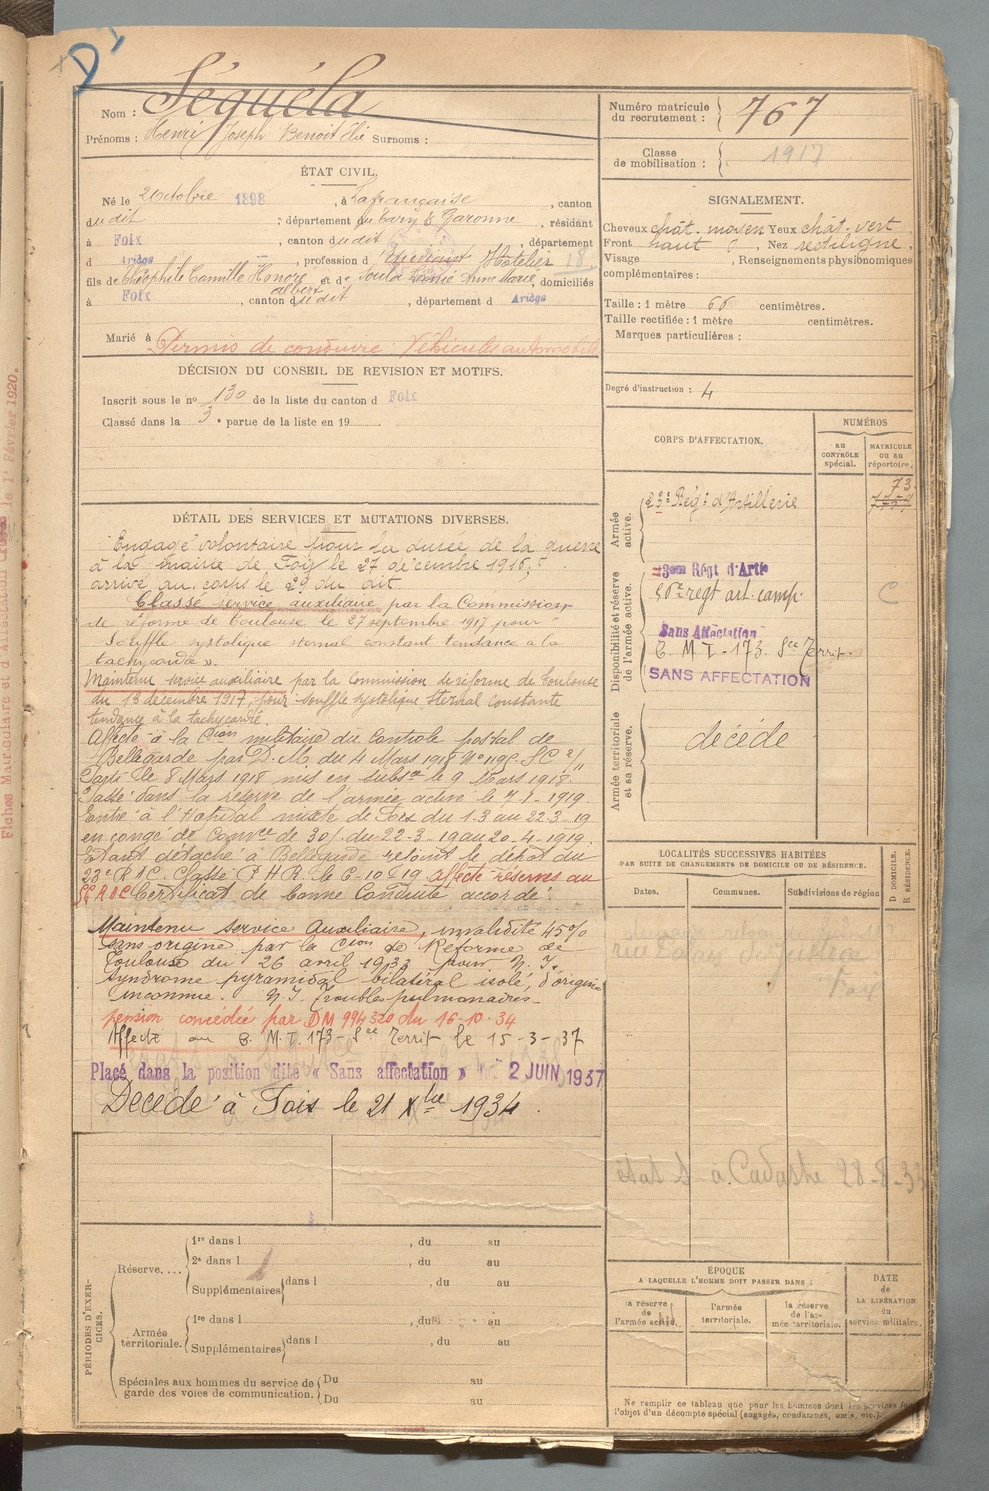 D
Nom : Séguéla
Prénoms : Henri Joseph Benoit Elie Surnoms :
ÉTAT CIVIL.
Né le 2 Octobre 1898, à Lafrançaise, canton
dudit, département du Tarn & Garonne, résidant
à Foix, canton dudit, département
d Ariège, profession d Hôtelier 18
fils de Théophile Camille Honoré et de Anne Marie, domiciliés
albert
à Foix, canton dudit, département d Ariège
Marié à
Permis de conduire Véhicules automobiles
DÉCISION DU CONSEIL DE REVISION ET MOTIFS.
Inscrit sous le n° 130 de la liste du canton d Foix
Classé dans la 3e partie de la liste en 19
DÉTAIL DES SERVICES ET MUTATIONS DIVERSES.
Engagé volontaire pour la durée de la guerre
à la mairie de Foix le 27 décembre 1916,
arrivé au corps le 29 du dit
Classé service auxiliaire par la Commission
de réforme de Toulouse le 27 septembre 1917 pour
souffle systolique sternal constant tendance à la
tachycardie ».
Maintenu service auxiliaire par la Commission de réforme de Toulouse
du 13 décembre 1917, pour souffle systolique sternal constante
tendance à la tachycardie.
Affecté à la Cion militaire du Controle postal de
Bellegarde par D. M. du 4 Mars 1918 N° 1195
Parti le 8 Mars 1918 mis en subsce le 9 Mars 1918.
Passé dans la réserve de l'armée active le 7-1-1919.
Entré à l'Hôpital mixte de Foix du 1.3 au 22-3-19
en congé de Convce de 30 j. du 22-3-19 au 20-4-1919.
Etant détaché à Bellegarde rejoint le dépôt du
23e R.A.C. Classé P.H.R. le 6-10-19 affecté réserves au
RAC Certificat de bonne Conduite accordé.
Maintenu service Auxiliaire, invalidité 45%
sans origine par la Cion de Réforme de
Toulouse du 26 avril 1933 pour N. I.
Syndrome pyramidal bilatéral isolé, d'origine
inconnue. N. I. Troubles pulmonaires
pension concédée par DM 994320 du 16-10-34
Affecté au C. M. I. 173 - Sce Territ le 15-3-37
Placé dans la position dite « Sans affectation » 2 JUIN 1937
Décédé à Foix le 21 Xbre 1934.
PÉRIODES D'EXERCICES.
Réserve.... 1re dans l , du au
2e dans l , du au
Supplémentaires dans l , du au
Armée territoriale. 1re dans l , du au
Supplémentaires dans l , du au
Spéciales aux hommes du service de garde des voies de communication. Du au
Du au
Numéro matricule du recrutement : 767
Classe de mobilisation : 1917
SIGNALEMENT.
Cheveux chât. moyen Yeux chât. vert
Front haut Nez rectiligne.
Visage , Renseignements physionomiques
complémentaires :
Taille : 1 mètre 66 centimètres.
Taille rectifiée : 1 mètre centimètres.
Marques particulières :
Degré d'instruction : 4
CORPS D'AFFECTATION.
NUMÉROS
AU CONTRÔLE spécial.
MATRICULE ou au répertoire.
Armée active.
23e Régt d'Artillerie
73
Disponibilité et réserve de l'armée active.
23eme Régt d'Artie
56e regt art. camp.
C
Sans Affectation
C. M. I - 173. Sce Territ.
SANS AFFECTATION
Armée territoriale et sa réserve.
décédé
LOCALITÉS SUCCESSIVES HABITÉES
PAR SUITE DE CHANGEMENTS DE DOMICILE OU DE RÉSIDENCE.
Dates. Communes. Subdivisions de région D DOMICILE. R RÉSIDENCE.
rue Palais de Justice
Foix
28-8-33
ÉPOQUE
A LAQUELLE L'HOMME DOIT PASSER DANS :
la réserve de l'armée active.
l'armée territoriale.
la réserve de l'armée territoriale.
DATE de LA LIBÉRATION du service militaire.
Ne remplir ce tableau que pour les hommes dont les services font
l'objet d'un décompte spécial (engagés, condamnés, omis, etc.).